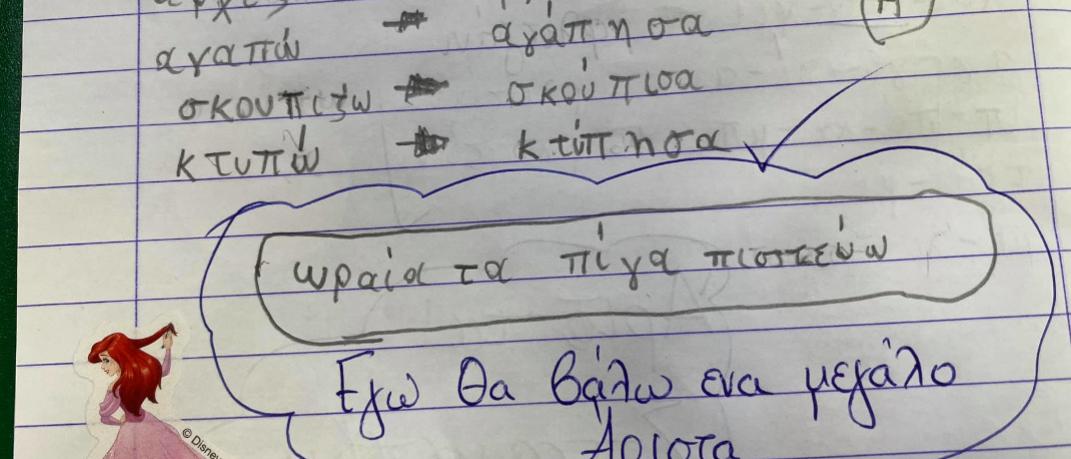 αγαπώ αγάπησα
σκουπίζω σκούπισα
κτυπώ κτύπησα
ωραία τα πίγα πιστεύω
Εγω θα βάλω ενα μεγάλο
Άριστα
© Disney